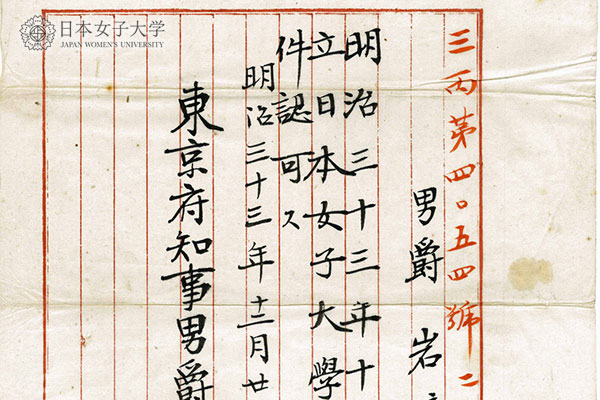 日本女子大学
JAPAN WOMEN'S UNIVERSITY
三丙第四〇五四號二
男爵 岩
明治三十三年十
立日本女子大學
件認可ス
明治三十三年十二月廿
東京府知事男爵